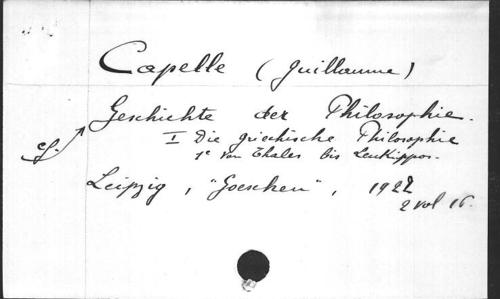 Capelle (Guillaume)
Geschichte der Philosophie.
I Die griechische Philosophie
1e Von Thales bis Leukippos.
cf.
Leipzig, "Goeschen", 1922
2 vol 16.